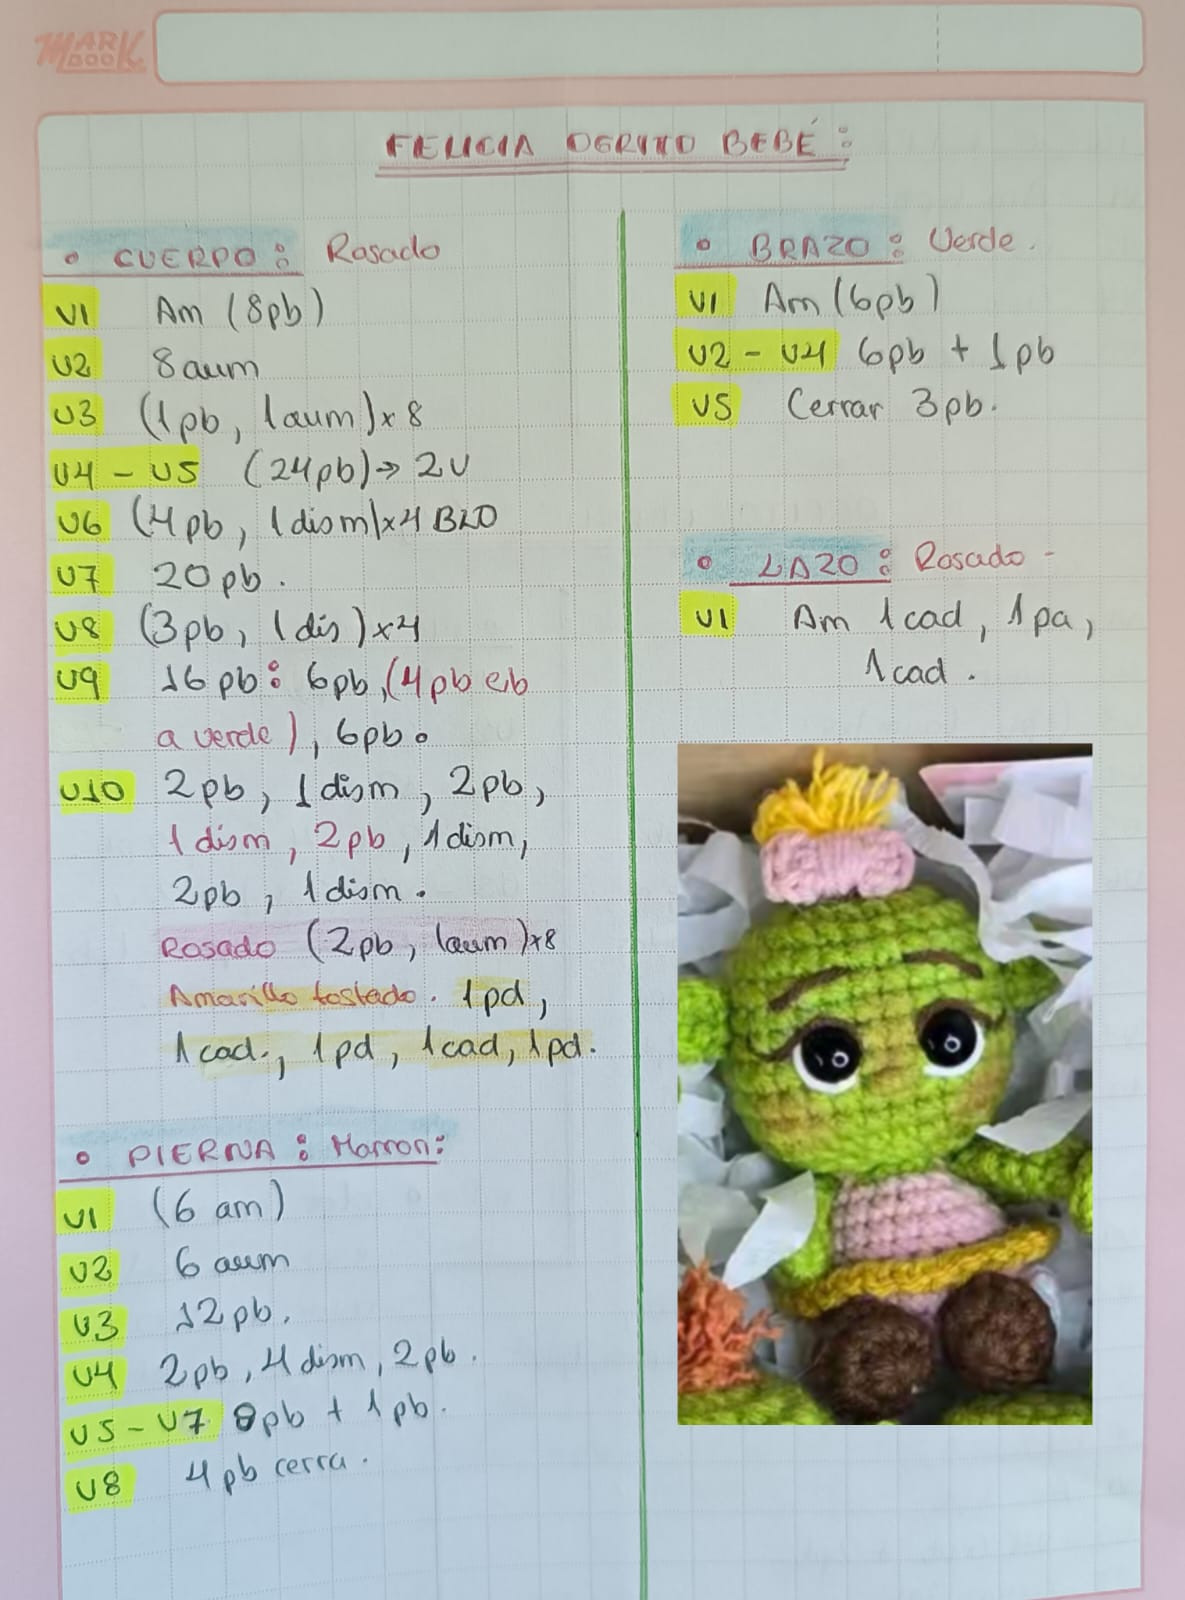 MARK BOOK
FELICIA OGRITO BEBÉ:
• CUERPO: Rosado
V1 Am (8pb)
V2 8 aum
V3 (1pb, 1aum)x8
V4 - V5 (24pb)→ 2V
V6 (4pb, 1dism)x4 BLO
V7 20pb.
V8 (3pb, 1dis)x4
V9 16pb: 6pb,(4pb
a verde), 6pb.
V10 2pb, 1dism, 2pb,
1dism, 2pb, 1dism,
2pb, 1dism.
Rosado (2pb, 1aum)x8
Amarillo tostado. 1pd,
1cad., 1pd, 1cad, 1pd.
• PIERNA: Marron:
V1 (6 am)
V2 6 aum
V3 12pb.
V4 2pb, 4dism, 2pb.
V5 - V7 8pb + 1pb.
V8 4pb cerra.
• BRAZO: Verde.
V1 Am (6pb)
V2 - V4 6pb + 1pb
V5 Cerrar 3pb.
• LAZO: Rosado -
V1 Am 1cad, 1pa,
1cad.